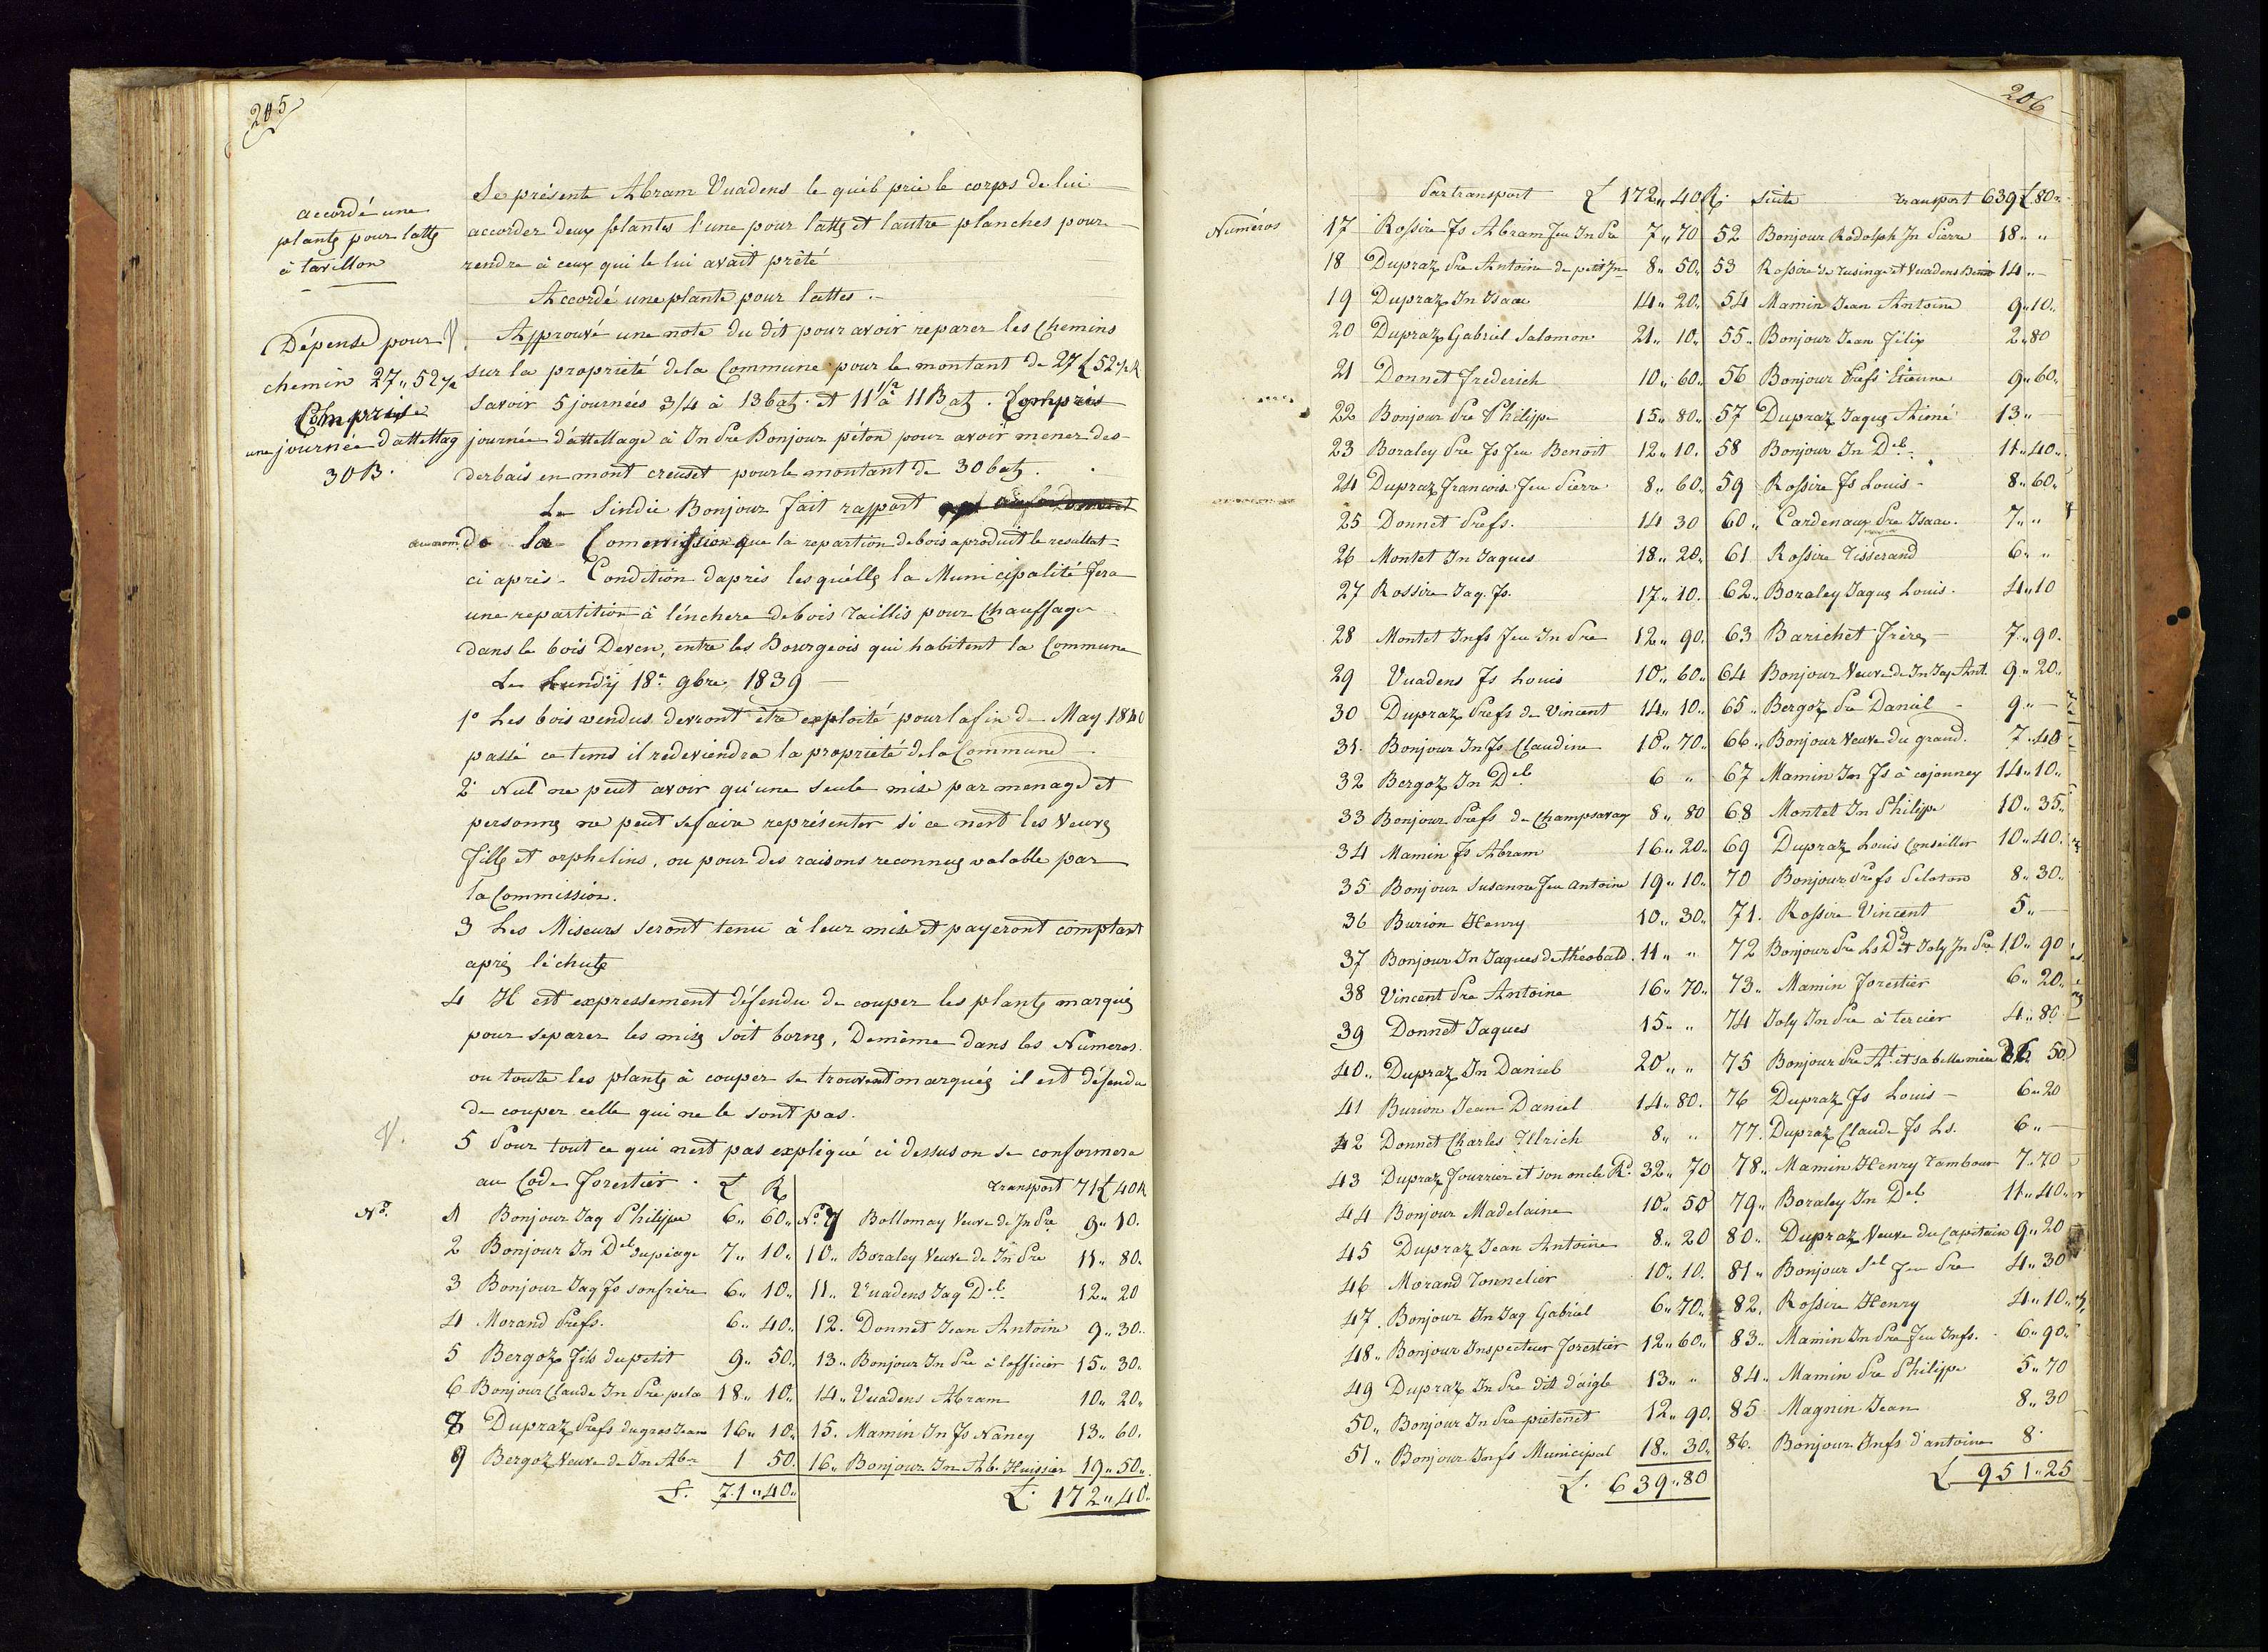 205
accordé une
plante pour latte
à tavillon
Se présente Abram Vuadens le quel prie le corps de lui
accorder deux plantes l'une pour latte et l'autre planches pour
rendre à ceux qui le lui avait prêté
Accordé une plante pour lattes.
Dépense pour
chemin 27„52½
Comprise
une journée d'attellag
30B.
Approuvé une note du dit pour avoir reparer les Chemins
sur la propriété de la Commune pour le montant de 27£52½R
Savoir 5 journées 3/4 à 13batz. et 11½ à 11Batz. Compris
journée d'attellage à Jn Pre Bonjour péton pour avoir mener des
derbais en mont creuset pour le montant de 30batz.
Le Sindic Bonjour fait rapport
au nom de la Commission que la repartion de bois a produit le resultat
ci après. Condition daprès lesquélles la Municipalité fera
une repartition à l'énchere de bois taillis pour Chauffage
dans le bois Deven, entre les Bourgeois qui habitent la Commune
Le Lundÿ 18e 9bre, 1839
1° Les bois vendus devront être exploité pour la fin de May 1840
passé ce tems il redeviendra la propriété de la Commune
2° Nul ne peut avoir qu'une seule mise par menage et
personne ne peut se faire représenter si ce nest les Veuves
filles et orphelins, ou pour des raisons reconnues valable par
la Commission.
3 Les Miseurs seront tenu à leur mise et payeront comptant
après léchute
4 Il est expressement défendu de couper les plantes marqués
pour separer les mises soit bornes, Demême dans les Numeros
ou toute les plantes à couper se trouvent marqués il est défendu
de couper celle qui ne le sont pas.
V. 5 Pour tout ce qui nest pas expliqué ci dessus on se conformera
au Code forestier. £ R transport 71£40R
No. 1 Bonjour Jaq Philippe 6„ 60„ No. 7 Bollomay Veuve de Jn Pre 9„ 10.
2 Bonjour Jn Del Dupéage 7„ 10„ 10„ Boraley Veuve de Jn Pre 11„ 80.
3 Bonjour Jaq Fs son frère 6„ 10„ 11„ Vuadens Jaq Del 12„ 20
4 Morand Prefs. 6„ 40„ 12. Donnet Jean Antoine 9„ 30.
5 Bergoz fils du petit 9„ 50. 13„ Bonjour Jn Pre à lofficier 15„ 30.
6 Bonjour Claude Jn Pre 18„ 10„ 14„ Vuadens Abram 10„ 20„
8 Dupraz Prefs du gros Jean 16„ 10„ 15. Mamin Jn Fs Nancy 13„ 60.
9 Bergoz Veuve de Jn Abr 1 50. 16„ Bonjour Jn Ab. Huissier 19„ 50„
£. 71„40„ £. 172„40„
206
Par transport £ 172„ 40R. Suite transport 639£80„
Numéros 17 Rossire Fs Abram feu Jn Pre 7„ 70 52 Bonjour Rodolph Jn Pierre 18„ „
18 Dupraz Pre Antoine de petit Jn 8„ 50„ 53 Rossire de Tusinge et Vuadens 14„ —
19 Dupraz Jn Isaac 14„ 20„ 54 Mamin Jean Antoine 9„10„
20 Dupraz Gabriel Salomon 21„ 10„ 55„ Bonjour Jean Félix 2„80
21 Donnet Frederich 10„ 60„ 56 Bonjour Prefs Etienne 9„60„
22 Bonjour Pre Philippe 15„ 80„ 57 Dupraz Jaques Aimé 13„ —
23 Boraley Pre Fs feu Benoit 12„ 10. 58 Bonjour Jn Del 11„40„
24 Dupraz François feu Pierre 8„ 60„ 59 Rossire Fs Louis 8„60„
25 Donnet Prefs. 14 30 60„ Cardenaux Pre Isaac. 7„ „
26 Montet Jn Jaques 18„ 20„ 61 Rossire Tisserand 6„ „
27 Rossire Jaq. Fs. 17„ 10. 62„ Boraley Jaques Louis. 4„10
28 Montet Jnfs feu Jn Pre 12„ 90. 63 Barichet frères 7„90.
29 Vuadens Fs Louis 10„ 60„ 64 Bonjour Veuve de Jn Jaq Ant. 9„20„
30 Dupraz Prefs de Vincent 14„ 10„ 65„ Bergoz Pre Daniel 9„ —
31. Bonjour Jn Fs Claudine 10„ 70„ 66„ Bonjour Veuve du grand. 7„40
32 Bergoz Jn Del 6 „ 67 Mamin Jn Fs à cojonney 14„10„
33 Bonjour Prefs de Champsavay 8„ 80 68 Montet Jn Philippe 10„35„
34 Mamin Fs Abram 16„ 20„ 69 Dupraz Louis Conseiller 10„40.
35 Bonjour Susanne feu Antoine 19„ 10„ 70 Bonjour Prefs Peloton 8„30.
36 Burion Henry 10„ 30„ 71. Rossire Vincent 5„ —
37 Bonjour Jn Jaques de théobald. 11„ „ 72 Bonjour Pre Ls Dd et Joly Jn Pre 10„ 90
38 Vincent Pre Antoine 16„ 70„ 73„ Mamin forestier 6„ 20„
39 Donnet Jaques 15„ „ 74 Joly Jn Pre à tercier 4„80
40„ Dupraz Jn Daniel 20„ „ 75 Bonjour Pre At. et sa belle mère 50
41 Burion Jean Daniel 14„ 80. 76 Dupraz Fs Louis 6„20
42 Donnet Charles Ulrich 8„ „ 77. Dupraz Claude Fs Ls. 6„ —
43 Dupraz fourrier et son oncle Rd. 32„ 70 78„ Mamin Henry Tambour 7„70
44 Bonjour Madelaine 10„ 50 79„ Boraley Jn Del 11„40„
45 Dupraz Jean Antoine 8„ 20 80„ Dupraz Veuve du Capitain 9„20
46 Morand Tonnelier 10„ 10. 81„ Bonjour Sel feu Pre 4„30
47. Bonjour Jn Jaq Gabriel 6„ 70„ 82„ Rossire Henry 4„10„
48„ Bonjour Inspecteur forestier 12„60„ 83„ Mamin Jn Pre feu Jnfs. 6„90„
49 Dupraz Jn Pre dit d'aigle 13„ „ 84„ Mamin Pre Philippe 5„70
50„ Bonjour Jn Pre pietenet 12„ 90. 85 Magnin Jean 8„30
51„ Bonjour Jnfs Municipal 18„ 30„ 86. Bonjour Jnfs d'antoine 8.
£. 639„80 £ 951„25